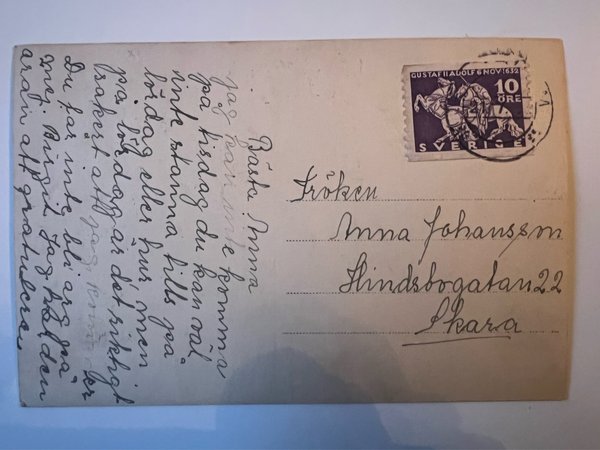 Bästa Anna
jag kan inte komma
på tisdag du kan väl
inte stanna tills på
lördag eller hur men
på lördag är det riktigt
säkert att jag kommer
Du får inte bli arg på
mej Birgit Jag had den
äran att gratulera.
GUSTAF II ADOLF 6 NOV 1632
10
ÖRE
SVERIGE
Fröken
Anna Johansson
Hindsbogatan 22
Skara